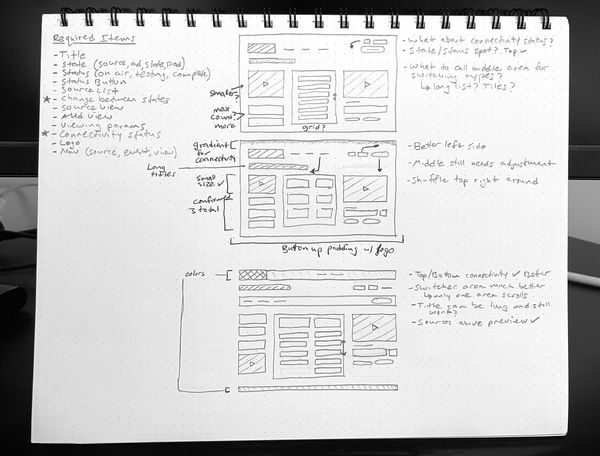 Required Items
- Title
- State (source, ad, slate, pod)
- Status (on air, testing, complete)
- Status Button
- Source List
★ - Change between states
- Source View
- Add View
- Viewing params
★ - Connectivity status
- Logo
- Nav (source, event, view)
smaller?
max count?
more
grid?
- What about connectivity status?
- State/Status spot? Top ✓
- What to call middle area for
switching types?
↳ long list? Tiles?
gradient for
connectivity
Long
titles
small
size ✓
confirmed
3 total
- Better left side
- Middle still needs adjustment
- Shuffle top right around
Button up padding w/ logo
colors
- Top/Bottom connectivity ✓ Better
- Switcher area much better
↳ only one area scrolls
- Title can be long and still
work?
- Sources above preview ✓